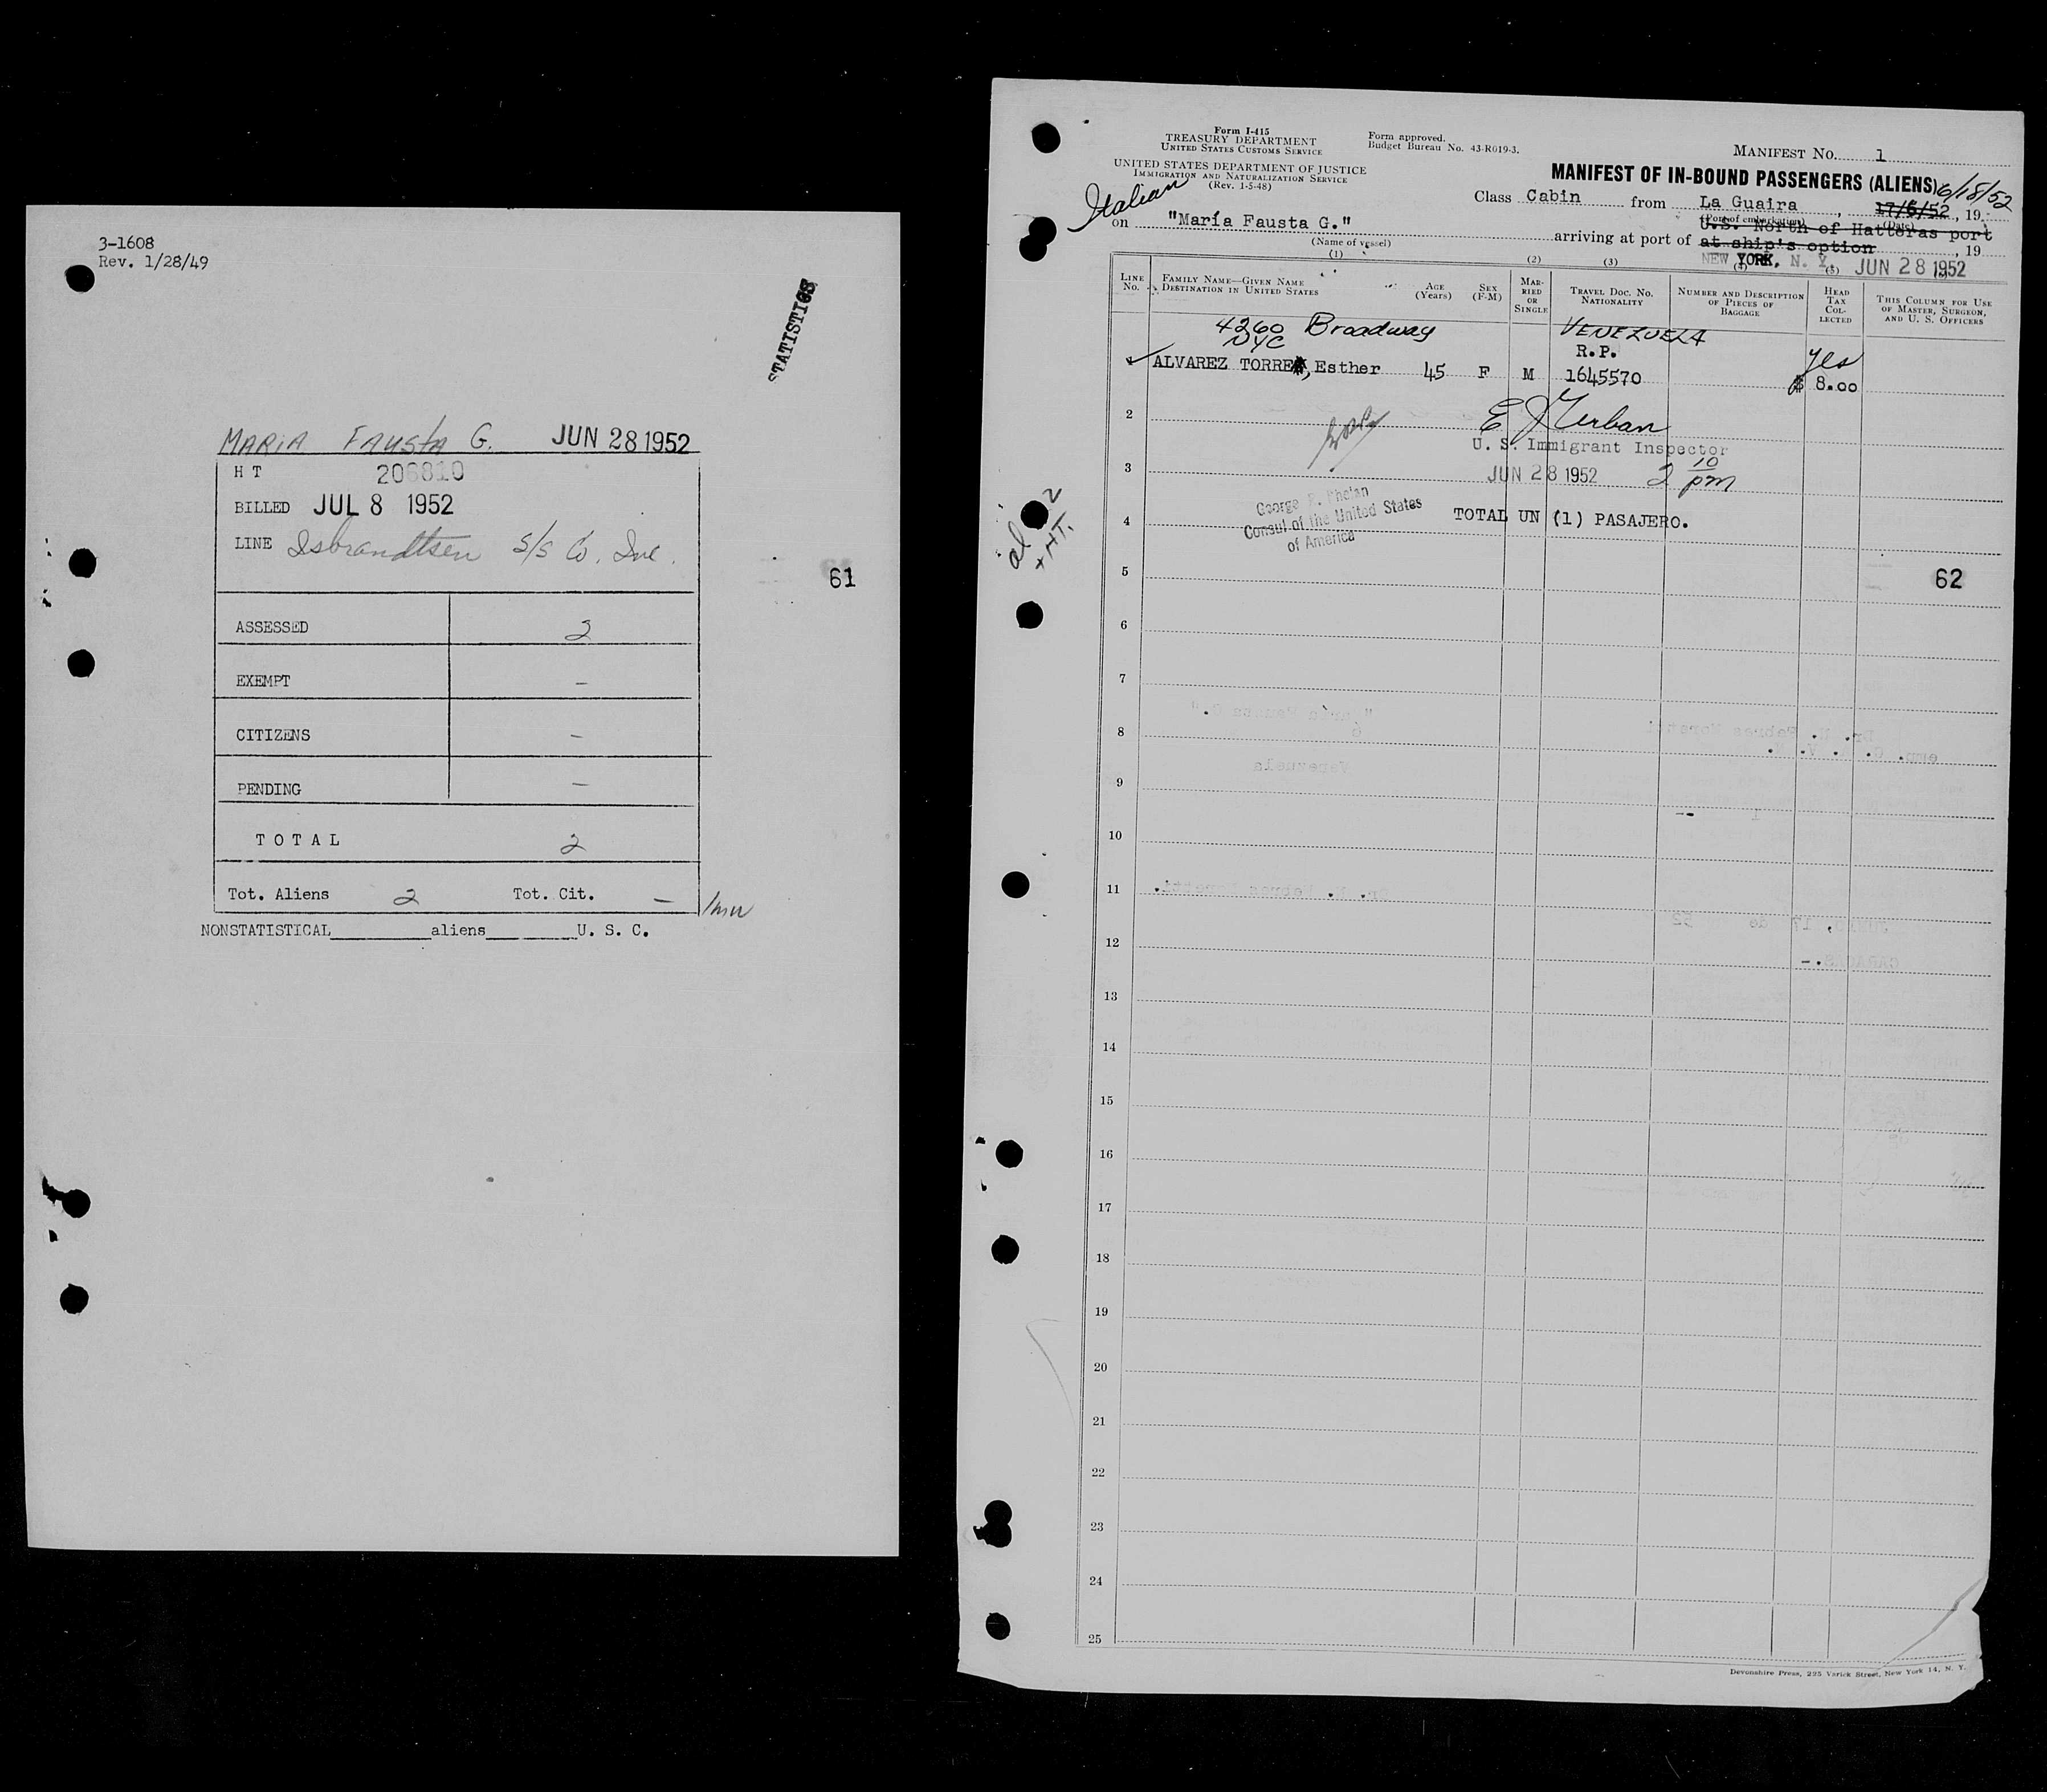 3-1608
Rev. 1/28/49
STATISTICS
MARIA FAUSTA G. JUN 28 1952
H T 206810
BILLED JUL 8 1952
LINE Isbrandtsen S/S Co. Inc.
61
ASSESSED 2
EXEMPT -
CITIZENS -
PENDING -
TOTAL 2
Tot. Aliens 2 Tot. Cit. -
NONSTATISTICAL aliens U. S. C.
Form I-415
TREASURY DEPARTMENT
UNITED STATES CUSTOMS SERVICE
UNITED STATES DEPARTMENT OF JUSTICE
IMMIGRATION AND NATURALIZATION SERVICE
(Rev. 1-5-48)
Form approved.
Budget Bureau No. 43-R019-3.
MANIFEST No. 1
MANIFEST OF IN-BOUND PASSENGERS (ALIENS) 6/18/52
Italian
Class Cabin from La Guaira, 17/6/52, 19
(Port of embarkation) (Date)
on "María Fausta G."
(Name of vessel)
arriving at port of U.S. North of Hatteras port
at ship's option, 19
NEW YORK, N. Y. JUN 28 1952
(1) (2) (3) (4) (5)
LINE No.
FAMILY NAME—GIVEN NAME
DESTINATION IN UNITED STATES
AGE (Years)
SEX (F-M)
MARRIED OR SINGLE
TRAVEL DOC. NO.
NATIONALITY
NUMBER AND DESCRIPTION OF PIECES OF BAGGAGE
HEAD TAX COLLECTED
THIS COLUMN FOR USE OF MASTER, SURGEON, AND U. S. OFFICERS
4260 Broadway VENEZUELA
NYC R.P. yes
1 ALVAREZ TORRE, Esther 45 F M 1645570 $ 8.00
2
U. S. Immigrant Inspector
3 JUN 28 1952 2 10 pm
George F. Phelan
Consul of the United States
of America
4 TOTAL UN (1) PASAJERO.
al 2
+ HT.
5 62
6
7
8
9
10
11
12
13
14
15
16
17
18
19
20
21
22
23
24
25
Devonshire Press, 225 Varick Street, New York 14, N. Y.